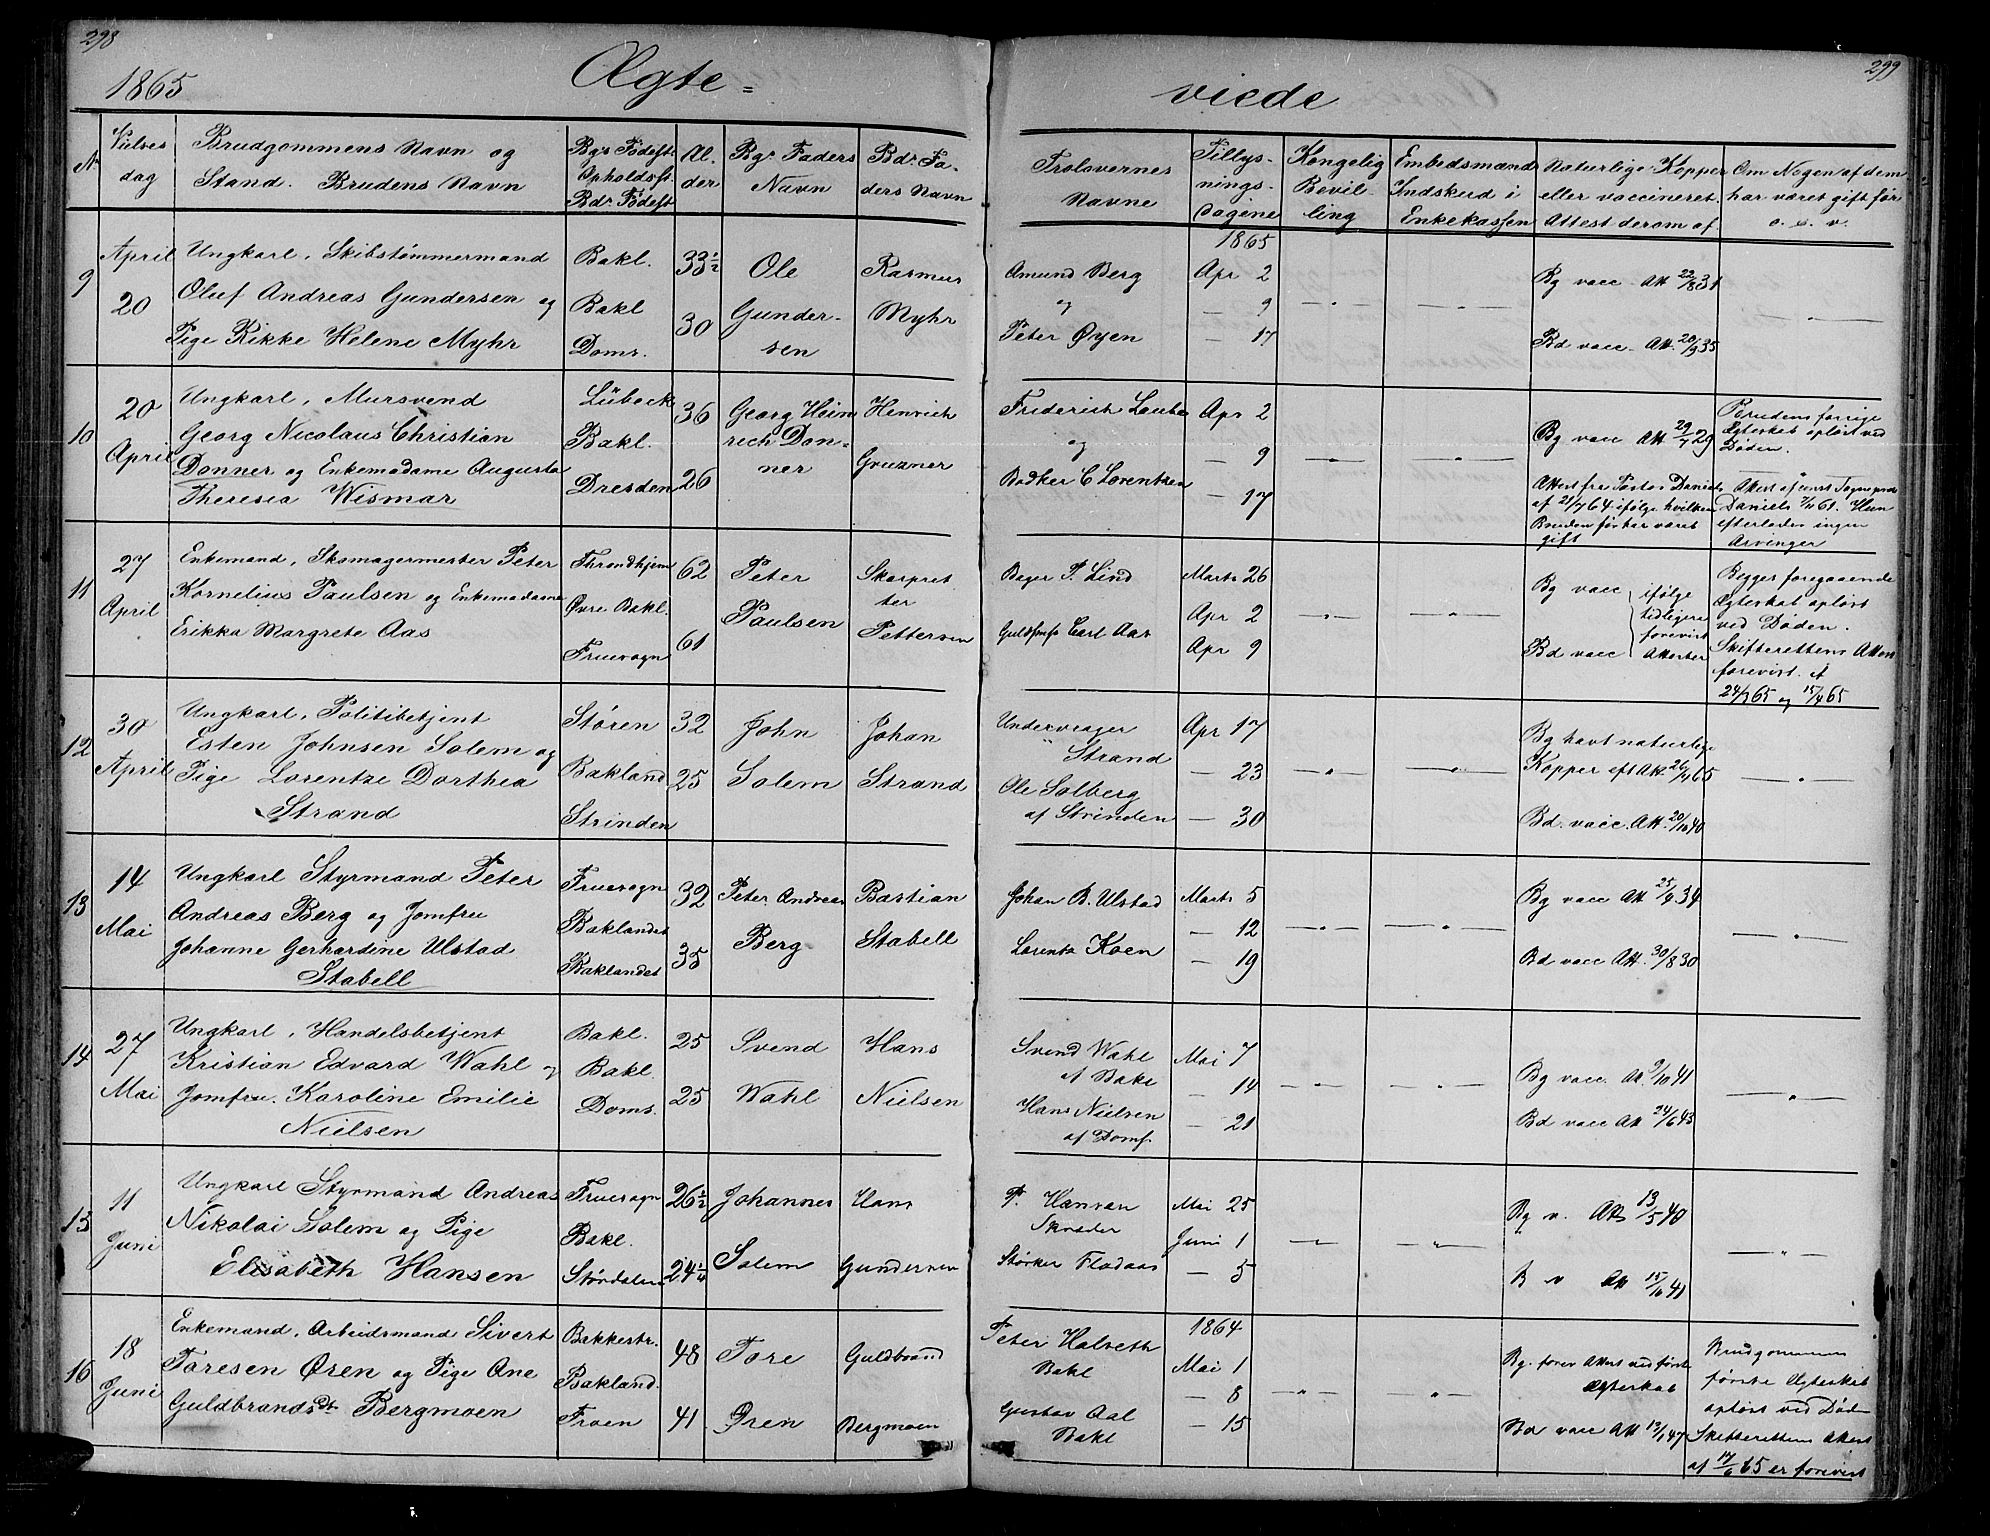 298
299
1865
Ægte=
viede
N.
Vielses dag
Brudgommens Navn og Stand. Brudens Navn
Bgs Fødest. Opholdsst. Bdr. Fødest
Alder
Bgs. Faders Navn
Bdr. Faders Navn
Trolovernes Navne
Tillysningsdagene
Kongelig Bevilling
Embedsmænds Indskud i Enkekassen
Naturlige Kopper eller vaccineret. Attest derom af
Om Nogen af dem har været gift før o. s. v.
9
April
20
Ungkarl, Skibstømmermand
Oluf Andreas Gundersen og
Pige Rikke Helene Myhr
Bakl.
Bakl
Doms.
33½
30
Ole
Gunder-
sen
Rasmus
Myhr
Amund Berg
og
Peter Øyen
1865
Apr 2
— 9
— 17
Bg vacc. Att 22/8 31
Bd vacc. Att. 20/9 35
10
20
April
Ungkarl, Mursvend
Georg Nicolaus Christian
Donner og Enkemadame Augusta
Theresia Wismar
Lübeck
Bakl.
Dresden
36
26
Georg Hein
rich Don=
ner
Henrich
Gruzner
Friderich Laube
og
Bødker C Lorentzen
Apr 2
— 9
— 17
Bg vacc Att 29/7 29
Attest fra Pastor Daniels
af 21/7 64 ifølge hvilken
Bruden før har været
gift
Brudens forrige
Ægteskab opløst ved
Døden.
Daniels 7/11 61. Hun
efterlader ingen
Arvinger
11
27
April
Enkemand, Skomagermester Peter
Kornelius Paulsen og Enkemadame
Erikka Margrete Aas
Throndhjem
Øvre Bakl.
Fruesogn
62
61
Peter
Paulsen
Skarpret
ter
Pettersen
Bager P. Lind
Guldsm. Carl Aas
Marts 26
Apr 2
Apr 9
Bg vacc
Bd vacc
ifølge
tidligere
forevist
Attester
Begges foregaaende
Ægteskab opløst
ved Døden.
Skifterettens Attest
forevist. af
24/3 65 og 15/4 65
12
30
April
Ungkarl, Politibetjent
Esten Johnsen Solem og
Pige Lorentze Dorthea
Strand
Støren
Bakland
Strinden
32
25
John
Solem
Johan
Strand
Undervager
" Strand
Ole Solberg
af Strinden
Apr 17
— 23
— 30
Bg havt naturlige
Kopper eft Att. 26/4 65
Bd. vacc. Att. 20/10 40
13
14
Mai
Ungkarl Styrmand Peter
Andreas Berg og Jomfru
Johanne Gerhardine Ulstad
Stabell
Fruesogn
Baklandet
Baklandet
32
35
Peter Andreas
Berg
Bastian
Stabell
Johan B. Ulstad
Lorentz Koen
Marts 5
— 12
— 19
Bg vacc Att 25/9 34
Bd vacc Att. 30/8 30
14
27
Mai
Ungkarl, Handelsbetjent
Kristian Edvard Wahl og
Jomfru. Karoline Emilie
Nielsen
Bakl.
Bakl.
Doms.
25
25
Svend
Wahl
Hans
Nielsen
Svend Wahl
af Bakl
Hans Nielsen
af Doms.
Mai 7
— 14
— 21
Bg vacc. Att. 9/10 41
Bd vacc Att 24/6 43
15
11
Juni
Ungkarl Styrmand Andreas
Nikolai Solem og Pige
Elisabeth Hansen
Fruesogn
Bakl.
Størdalen
26½
24¼
Johannes
Solem
Hans
Gundersen
P. Hansen
Skræder
Størker Flodaas
Mai 25
Juni 1
— 5
Bg v. Att 13/5 40
B v Att 15/10 41
16
18
Juni
Enkemand, Arbeidsmand Sivert
Toresen Øren og Pige Ane
Guldbrandsdt Bergmoen
Bakkestr.
Bakland.
Froen
48
41
Tore
Øren
Guldbrand
Bergmoen
Peter Halseth
Bakl
Gustav Aal
Bakl
1864
Mai 1
— 8
— 15
Bg. forev Attest ved første
Ægteskab
Bd vacc Att 13/1 47
Brudgommens
første Ægteskab
opløst ved Død
Skifterettens Attest
af 17/6 65 er forevist